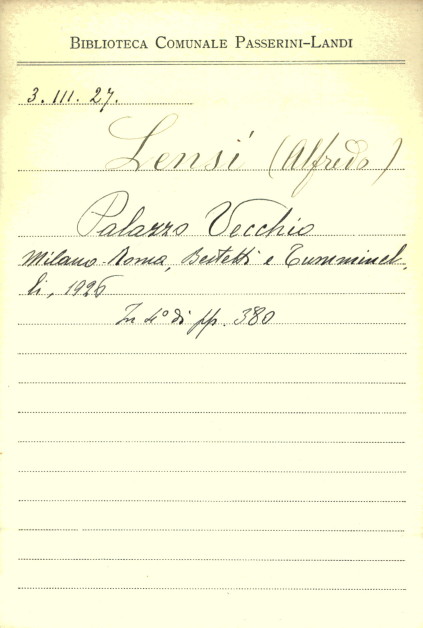 BIBLIOTECA COMUNALE PASSERINI-LANDI
3. III. 27.
Lensi (Alfredo)
Palazzo Vecchio
Milano-Roma, Bestetti e Tumminel-
li, 1926
In 4° di pp. 380